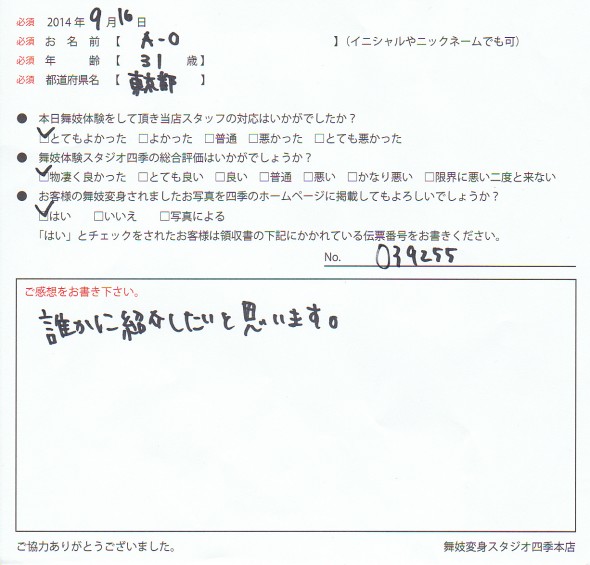 必須 2014年 9月 16日
必須 お名前【 A-O 】(イニシャルやニックネームでも可)
必須 年齢【 31 歳】
必須 都道府県名【 東京都 】
● 本日舞妓体験をして頂き当店スタッフの対応はいかがでしたか?
□とてもよかった □よかった □普通 □悪かった □とても悪かった
● 舞妓体験スタジオ四季の総合評価はいかがでしょうか?
□物凄く良かった □とても良い □良い □普通 □悪い □かなり悪い □限界に悪い二度と来ない
● お客様の舞妓変身されましたお写真を四季のホームページに掲載してもよろしいでしょうか?
□はい □いいえ □写真による
「はい」とチェックをされたお客様は領収書の下記にかかれている伝票番号をお書きください。
No. 039255
ご感想をお書き下さい。
誰かに紹介したいと思います。
ご協力ありがとうございました。 舞妓変身スタジオ四季本店